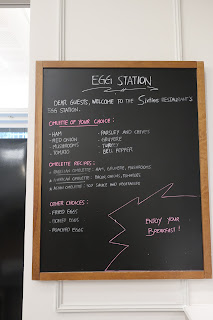 EGG STATION
DEAR GUESTS, WELCOME TO THE Sixtine RESTAURANT'S
EGG STATION.
OMELETTE OF YOUR CHOICE:
- HAM - PARSLEY AND CHIVES
- RED ONION - GRUYERE
- MUSHROOMS - TURKEY
- TOMATO - BELL PEPPER
OMELETTE RECIPES:
OMELETTE: HAM, GRUYERE, MUSHROOMS
OMELETTE: BACON, ONIONS, POTATOES
OMELETTE: SOY SAUCE AND VEGETABLES
OTHER CHOICES:
- FRIED EGGS
- BOILED EGGS
- POACHED EGGS
ENJOY YOUR
BREAKFAST!